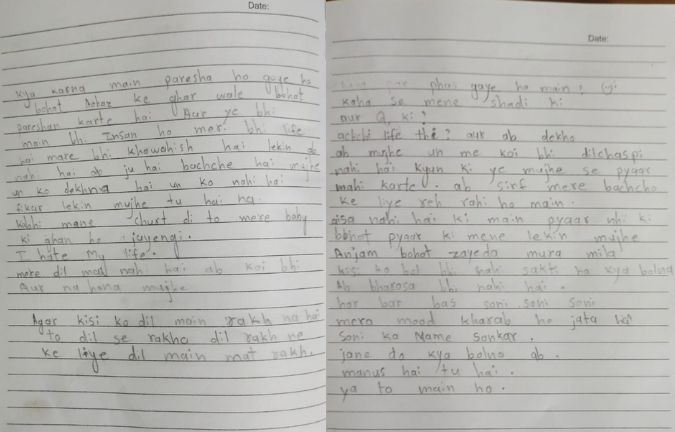 Date:
kya karna main paresha ho gaye ho
bohot Mehar ke ghar wale bohot
pareshan karte hai Aur ye bhi
main bhi Insan ho meri bhi life
hai mare bhi khawahish hai lekin
nahi hai ab ju hai bachche hai mujhe
un ko dekhna hai un ko nahi hai
fikar lekin mujhe tu hai na.
kabhi mane churt di to mere baby
ki jhan ho jayengi.
I hate My life.
mere dil mad nahi hai ab koi bhi
Aur na hona mujhe
Agar kisi ko dil main rakh na hai
to dil se rakho dil rakh ne
ke liye dil main mat rakh.
Date:
phas gaye ho main,
kaha se mene shadi ki
aur Q, ki?
achchi life thi? aur ab dekho
ab mujhe un me koi bhi dilchaspi
nahi hai kyun ki ye mujhe se pyaar
nahi karte. ab sirf mere bachcho
ke liye reh rahi ho main.
aisa nahi hai ki main pyaar nhi ki
bohot pyaar ki mene lekin mujhe
Anjam bohot zayeda mura mila
kisi ko bol bhi nahi sakti na kya bolna
Ab bharosa bhi nahi hai.
har bar bas soni soni soni
mera mood kharab ho jata hai
Soni ka Name Sankar.
jane do kya bolna ab.
manus hai tu hai.
ya to main ho.